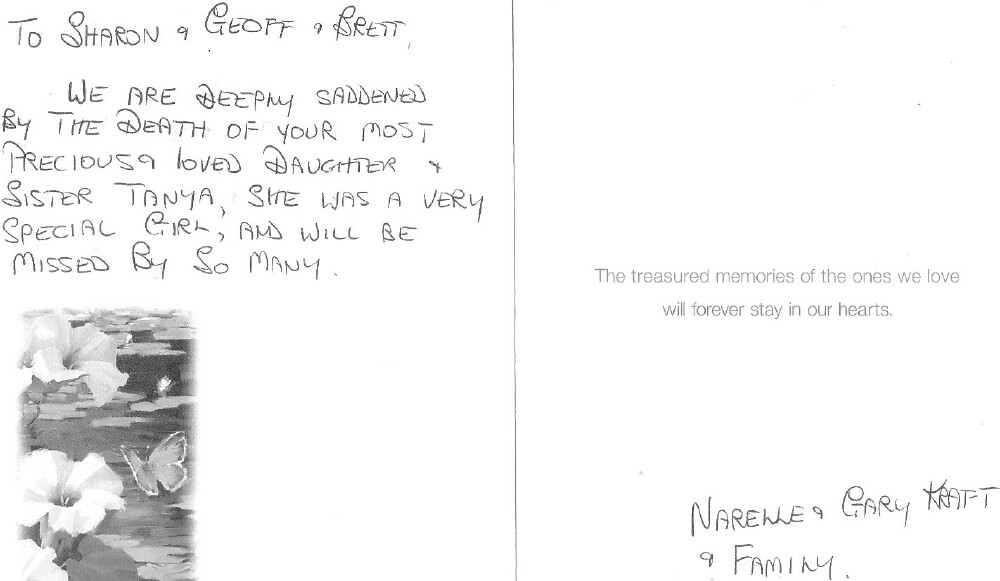 TO SHARON & GEOFF & BRETT,
WE ARE DEEPLY SADDENED
BY THE DEATH OF YOUR MOST
PRECIOUS & LOVED DAUGHTER &
SISTER TANYA, SHE WAS A VERY
SPECIAL GIRL, AND WILL BE
MISSED BY SO MANY.
The treasured memories of the ones we love
will forever stay in our hearts.
NARELLE & GARY KRAFT
& FAMILY.